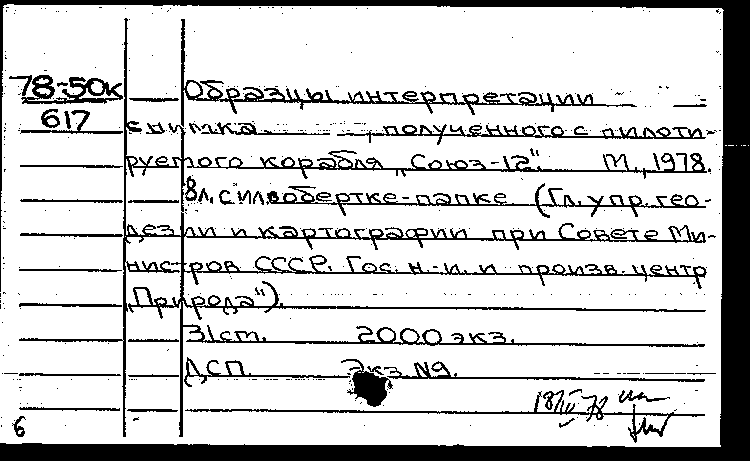 78-50к Образцы интерпретации
617 снимка , полученного с пилоти-
руемого корабля „Союз-12“. М., 1978.
8л. с ил. в обертке-папке (Гл. упр. гео-
дезии и картографии при Совете Ми-
нистров СССР. Гос. н.-и. и произв. центр
„Природа“).
31 cm. 2000 экз.
ДСП. Экз. №9.
6